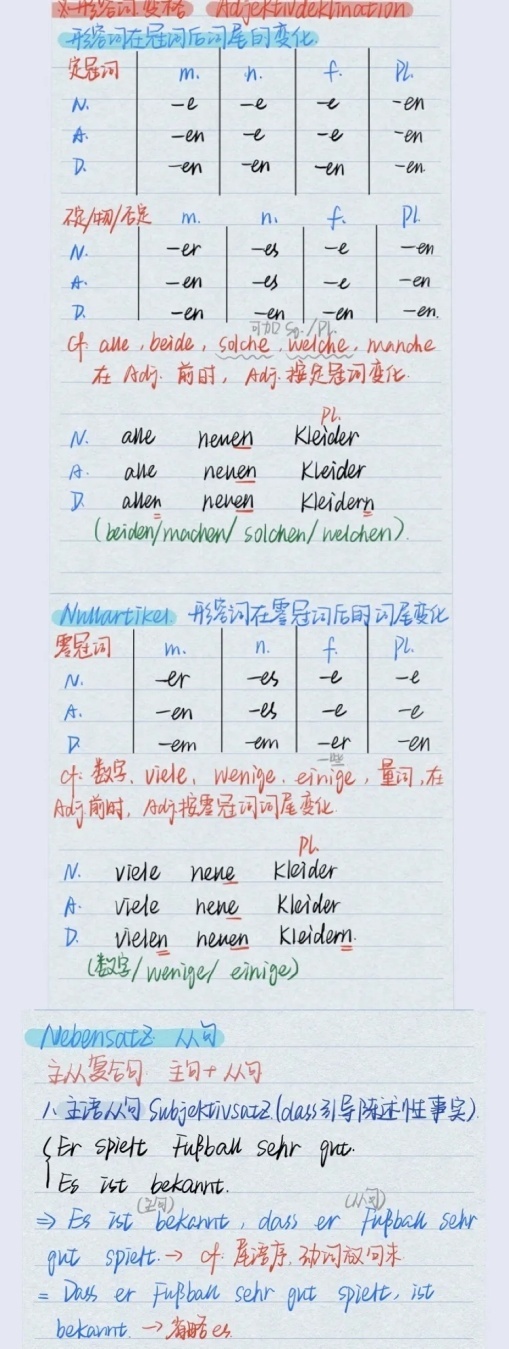 ※形容词变格 Adjektivdeklination
形容词在冠词后词尾的变化.
定冠词 m. n. f. Pl.
N. -e -e -e -en
A. -en -e -e -en
D. -en -en -en -en.
不定/物/否定 m. n. f. Pl.
N. -er -es -e -en
A. -en -es -e -en
D. -en -en -en -en.
可加 Sg./Pl.
cf. alle, beide, solche, welche, manche
在 Adj. 前时, Adj. 按定冠词变化.
Pl.
N. alle neuen Kleider
A. alle neuen Kleider
D. allen neuen Kleidern
(beiden/machen/ solchen/ welchen).
Nullartikel 形容词在零冠词后的词尾变化
零冠词 m. n. f. Pl.
N. -er -es -e -e
A. -en -es -e -e
D. -em -em -er -en
一些
cf. 数字, viele, wenige, einige, 量词, 在
Adj 前时, Adj 按零冠词词尾变化.
Pl.
N. viele neue Kleider
A. viele neue Kleider
D. vielen neuen Kleidern.
(数字/ wenige/ einige)
Nebensatz 从句
主从复合句 主句 + 从句
1. 主语从句 Subjektivsatz (dass引导陈述性事实).
{ Er spielt Fußball sehr gut.
Es ist bekannt.
(主句) (从句)
⇒ Es ist bekannt, dass er Fußball sehr
gut spielt. → cf. 尾语序, 动词放句末
= Dass er Fußball sehr gut spielt, ist
bekannt. → 省略es.